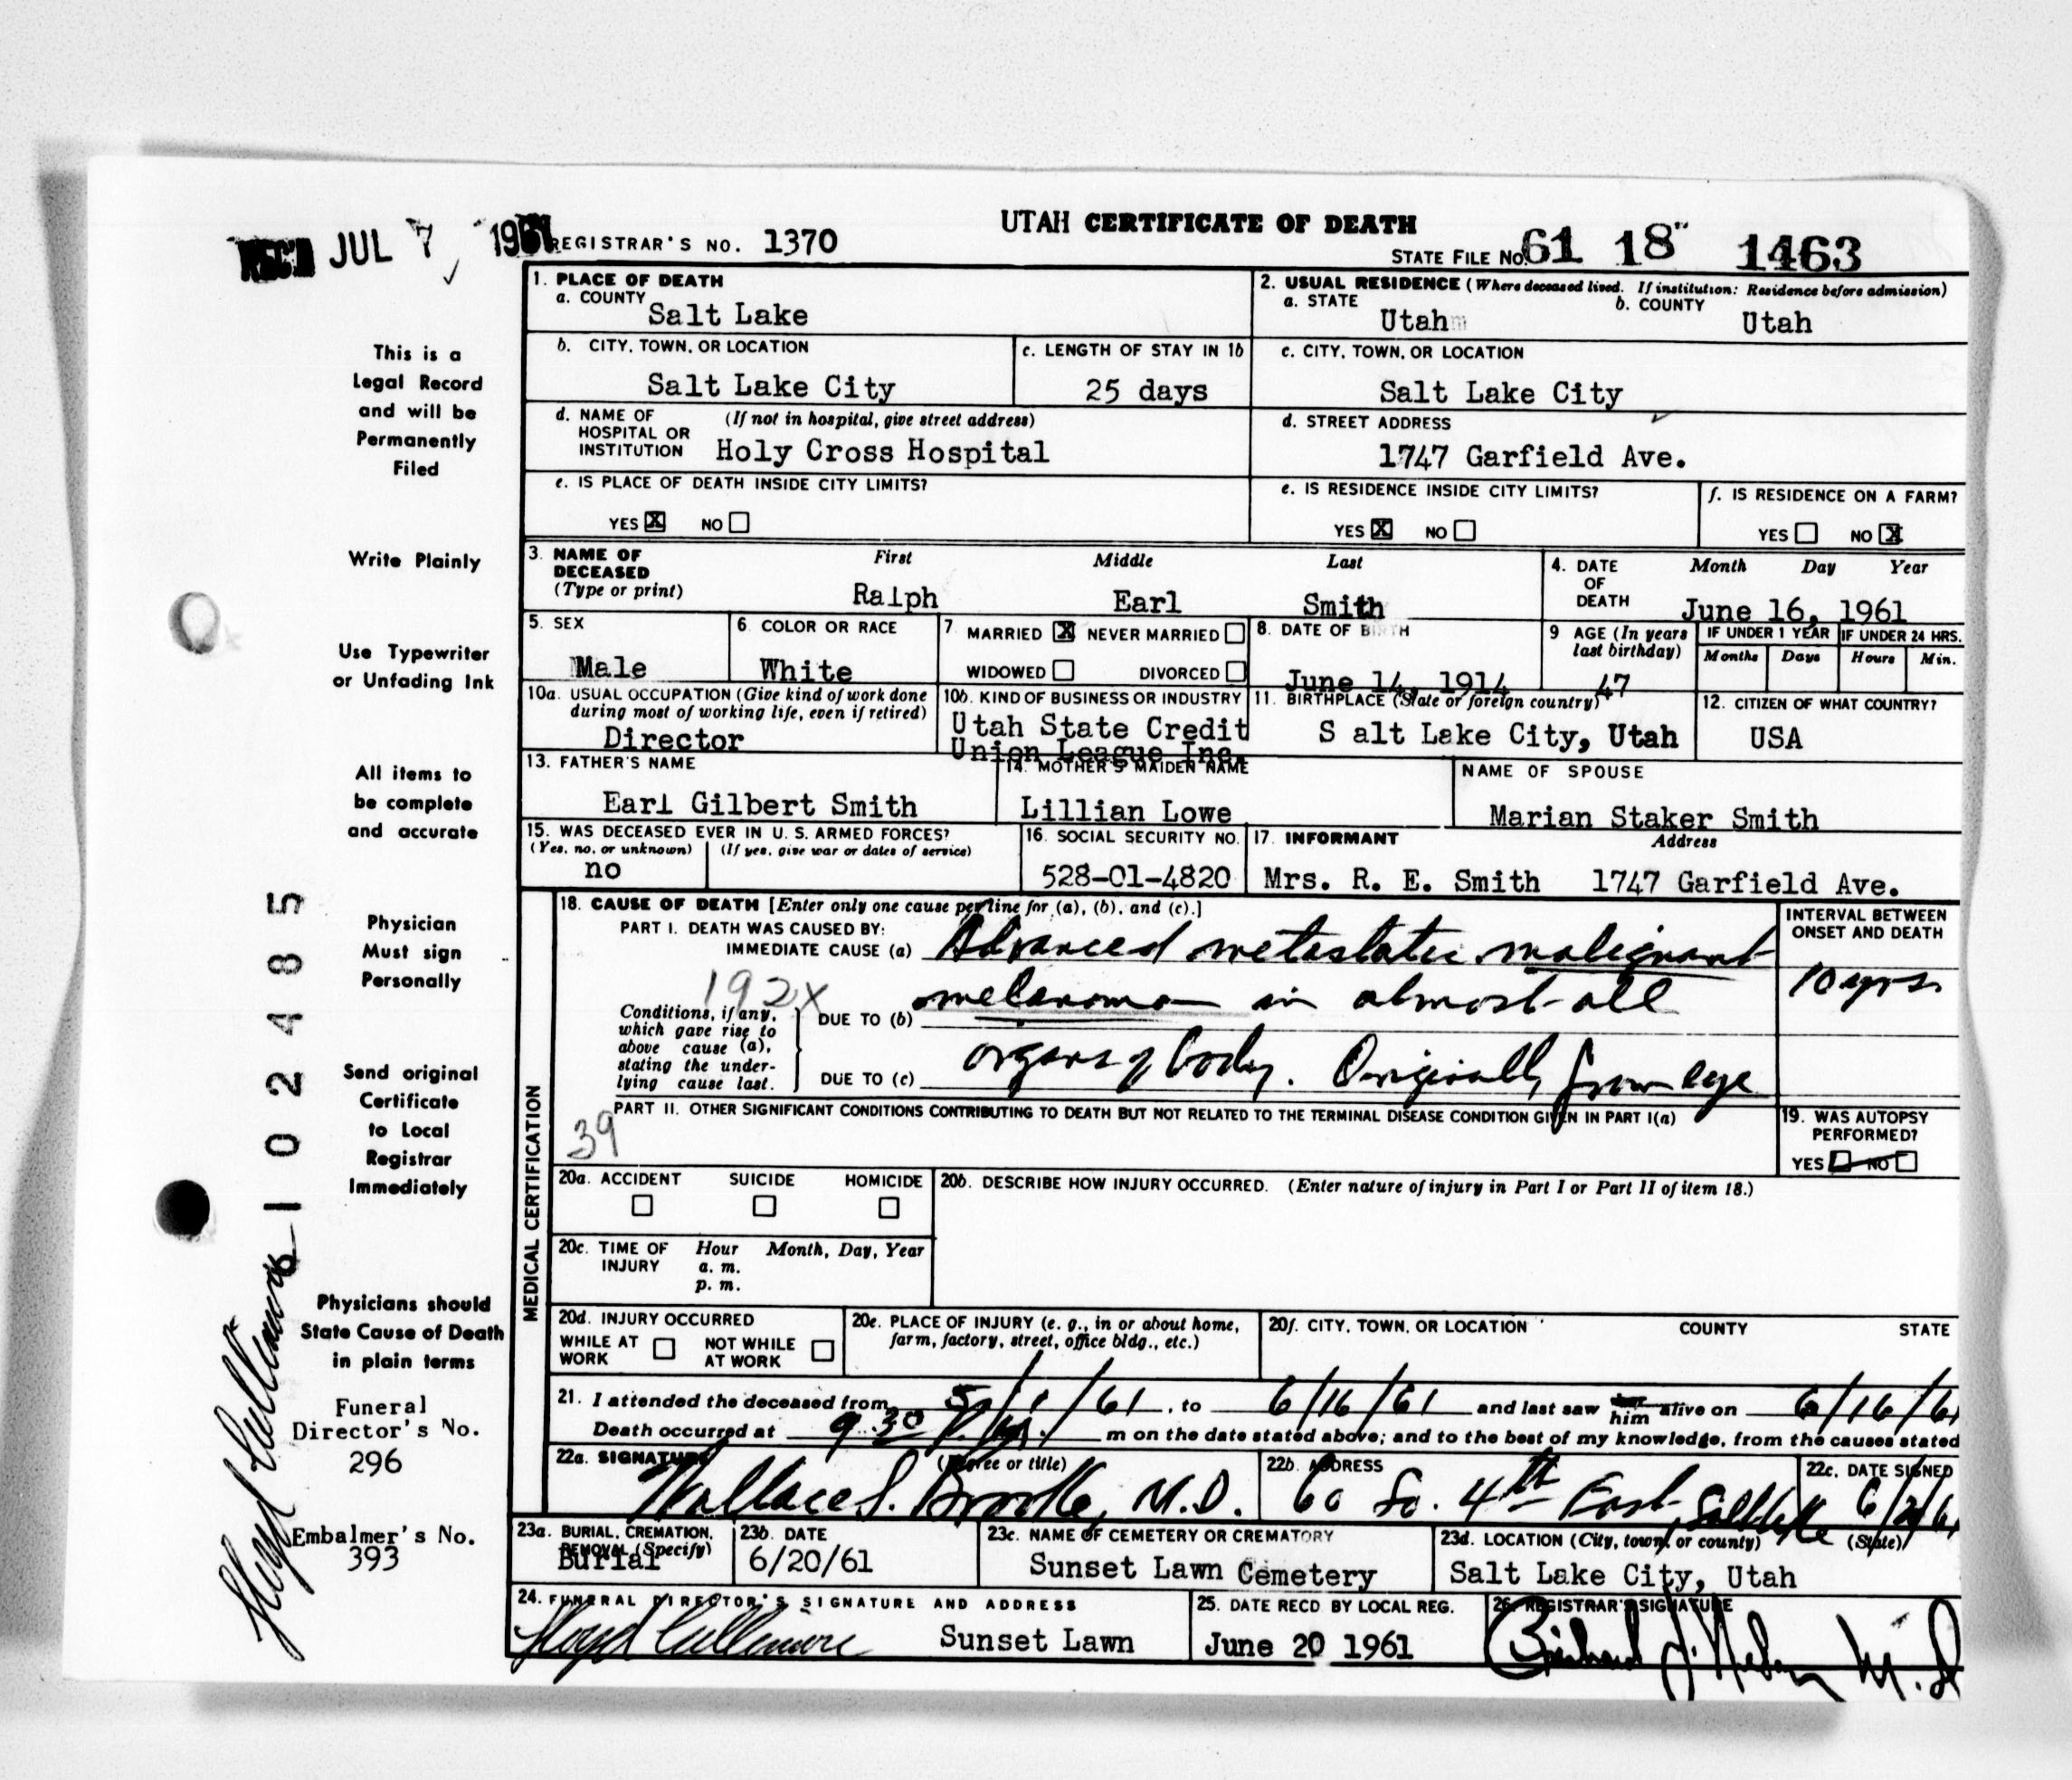 UTAH CERTIFICATE OF DEATH
REC'D JUL 7 1961 REGISTRAR'S NO. 1370 STATE FILE NO. 61 18 1463
1. PLACE OF DEATH
a. COUNTY Salt Lake
2. USUAL RESIDENCE (Where deceased lived. If institution: Residence before admission)
a. STATE Utah b. COUNTY Utah
b. CITY, TOWN, OR LOCATION Salt Lake City
c. LENGTH OF STAY IN 1b 25 days
c. CITY, TOWN, OR LOCATION Salt Lake City
d. NAME OF (If not in hospital, give street address)
HOSPITAL OR
INSTITUTION Holy Cross Hospital
d. STREET ADDRESS
1747 Garfield Ave.
e. IS PLACE OF DEATH INSIDE CITY LIMITS?
YES X NO
e. IS RESIDENCE INSIDE CITY LIMITS?
YES X NO
f. IS RESIDENCE ON A FARM?
YES NO X
3. NAME OF DECEASED (Type or print)
First Middle Last
Ralph Earl Smith
4. DATE OF DEATH Month Day Year
June 16, 1961
5. SEX
Male
6. COLOR OR RACE
White
7 MARRIED X NEVER MARRIED
WIDOWED DIVORCED
8. DATE OF BIRTH
June 14, 1914
9 AGE (In years last birthday)
47
IF UNDER 1 YEAR IF UNDER 24 HRS.
Months Days Hours Min.
10a. USUAL OCCUPATION (Give kind of work done
during most of working life, even if retired)
Director
10b. KIND OF BUSINESS OR INDUSTRY
Utah State Credit
Union League Inc.
11. BIRTHPLACE (State or foreign country)
S alt Lake City, Utah
12. CITIZEN OF WHAT COUNTRY?
USA
13. FATHER'S NAME
Earl Gilbert Smith
14. MOTHER'S MAIDEN NAME
Lillian Lowe
NAME OF SPOUSE
Marian Staker Smith
15. WAS DECEASED EVER IN U. S. ARMED FORCES?
(Yes, no, or unknown) (If yes, give war or dates of service)
no
16. SOCIAL SECURITY NO.
528-01-4820
17. INFORMANT Address
Mrs. R. E. Smith 1747 Garfield Ave.
MEDICAL CERTIFICATION
18. CAUSE OF DEATH [Enter only one cause per line for (a), (b), and (c).]
PART I. DEATH WAS CAUSED BY:
IMMEDIATE CAUSE (a) Advanced metastatic malignant
INTERVAL BETWEEN
ONSET AND DEATH
10 yrs.
192X
Conditions, if any,
which gave rise to
above cause (a),
stating the under-
lying cause last.
DUE TO (b) melanoma in almost all
DUE TO (c) organs of body. Originally from eye
PART II. OTHER SIGNIFICANT CONDITIONS CONTRIBUTING TO DEATH BUT NOT RELATED TO THE TERMINAL DISEASE CONDITION GIVEN IN PART I(a)
39
19. WAS AUTOPSY
PERFORMED?
YES NO
20a. ACCIDENT SUICIDE HOMICIDE
20b. DESCRIBE HOW INJURY OCCURRED. (Enter nature of injury in Part I or Part II of item 18.)
20c. TIME OF INJURY Hour Month, Day, Year
a. m.
p. m.
20d. INJURY OCCURRED
WHILE AT WORK NOT WHILE AT WORK
20e. PLACE OF INJURY (e. g., in or about home,
farm, factory, street, office bldg., etc.)
20f. CITY, TOWN, OR LOCATION COUNTY STATE
21. I attended the deceased from 5/1/61, to 6/16/61 and last saw him alive on 6/16/61
Death occurred at 9:30 P.M. m on the date stated above; and to the best of my knowledge, from the causes stated
22a. SIGNATURE (Degree or title)
Wallace S. Brooke, M.D.
22b. ADDRESS
60 So. 4th East, Salt Lake
22c. DATE SIGNED
23a. BURIAL, CREMATION,
REMOVAL (Specify)
Burial
23b. DATE
6/20/61
23c. NAME OF CEMETERY OR CREMATORY
Sunset Lawn Cemetery
23d. LOCATION (City, town, or county) (State)
Salt Lake City, Utah
24. FUNERAL DIRECTOR'S SIGNATURE AND ADDRESS
Floyd Cullimore Sunset Lawn
25. DATE RECD BY LOCAL REG.
June 20 1961
26. REGISTRAR'S SIGNATURE
M.D
This is a
Legal Record
and will be
Permanently
Filed
Write Plainly
Use Typewriter
or Unfading Ink
All items to
be complete
and accurate
Physician
Must sign
Personally
Send original
Certificate
to Local
Registrar
Immediately
Physicians should
State Cause of Death
in plain terms
Funeral
Director's No.
296
Embalmer's No.
393
Floyd Cullimore
6102485